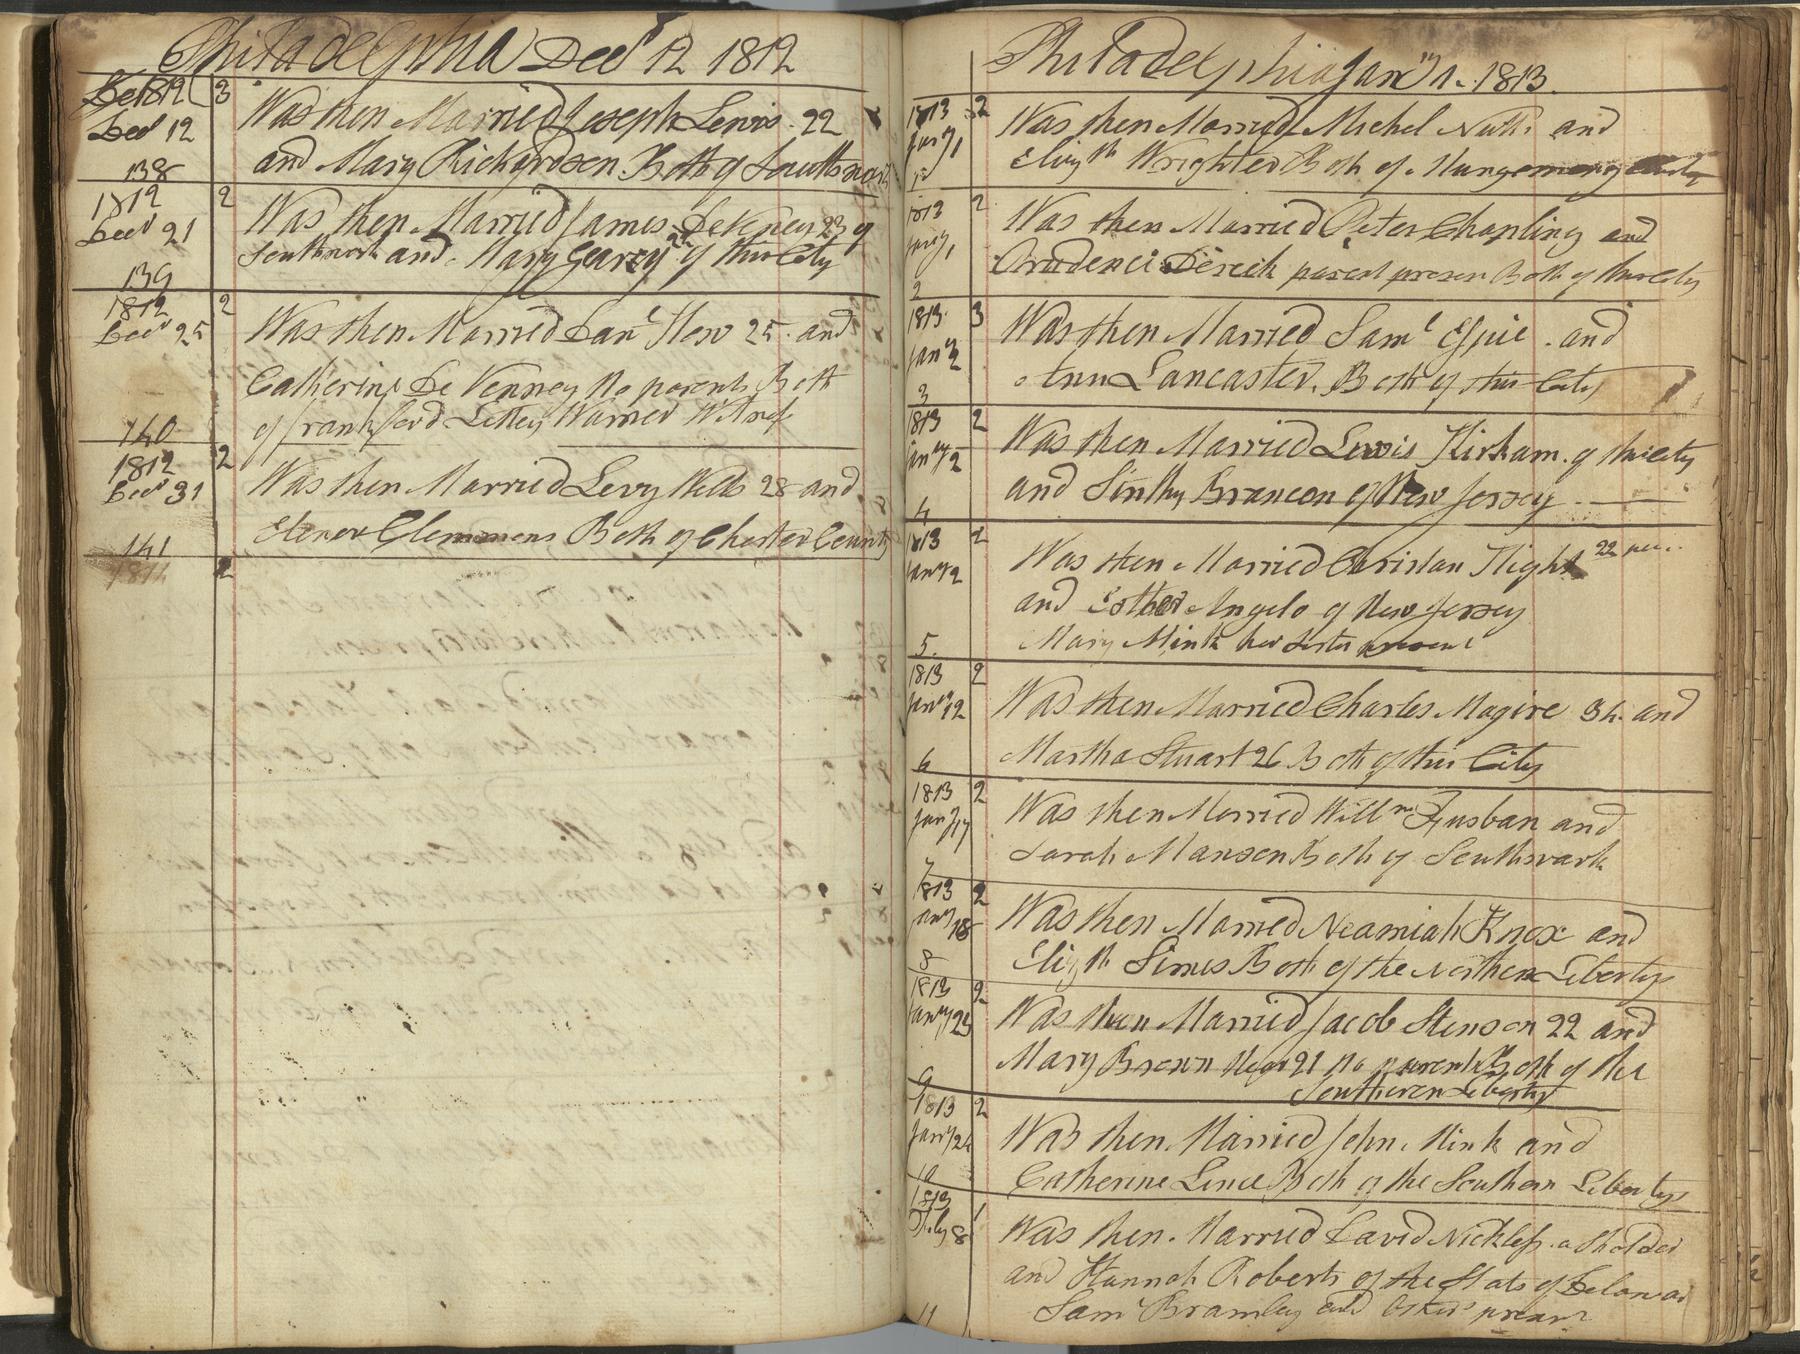 Philadelphia Decr 12 1812
Decr 12
138
3
Was then Married Joseph Lewis 22
and Mary Richardson Both of Southwark
1812
Decr 21
139
2
Was then Married James DeVeney 23 of
Southwark and Mary Gearey 22 of this City
1812
Decr 25
140
2
Was then Married Danl How 25 and
Catherine De Venney No parents Both
of frankford Witness
1812
Decr 31
141
2
Was then Married Levy Webb 28 and
Elener Clemmens Both of Chester County
2
Philadelphia Jany 1 1813
1813
Jany 1
1
2
Was then Married Michel Nutts and
Elizth Wrighter Both of
1813
Jany 1
2
2
Was then Married Peter Chapling and
Prudence parent presen Both of this City
1813
Jany 2
3
3
Was then Married Saml and
Ann Lancaster. Both of this City
1813
Jany 2
4
2
Was then Married Lewis Kirkham of this City
and Sinthy Brancon of New Jersey
1813
Jany 2
5
2
Was then Married Christan Flight 22
and Esther Angelo of New Jersey
Mary Mink her sister present
1813
Jany 12
6
2
Was then Married Charles Magire 34 and
Martha Stuart 26 Both of this City
1813
Jany 17
7
2
Was then Married Willm Husban and
Sarah Manson Both of Southwark
1813
Jany 18
8
2
Was then Married Neamiah Knox and
Elizth Simes Both of the Northen Libertys
1813
Jany 23
9
2
Was then Married Jacob Stenson 22 and
Mary Brown 21 no parents Both of the
Southeren Libertys
1813
Jany 24
10
2
Was then Married John Mink and
Catherine Lince Both of the Southern Libertys
1813
8
11
1
Was then Married David Nickless
and Hannah Roberts of the State of Delawar
Saml Bramley and Others presant